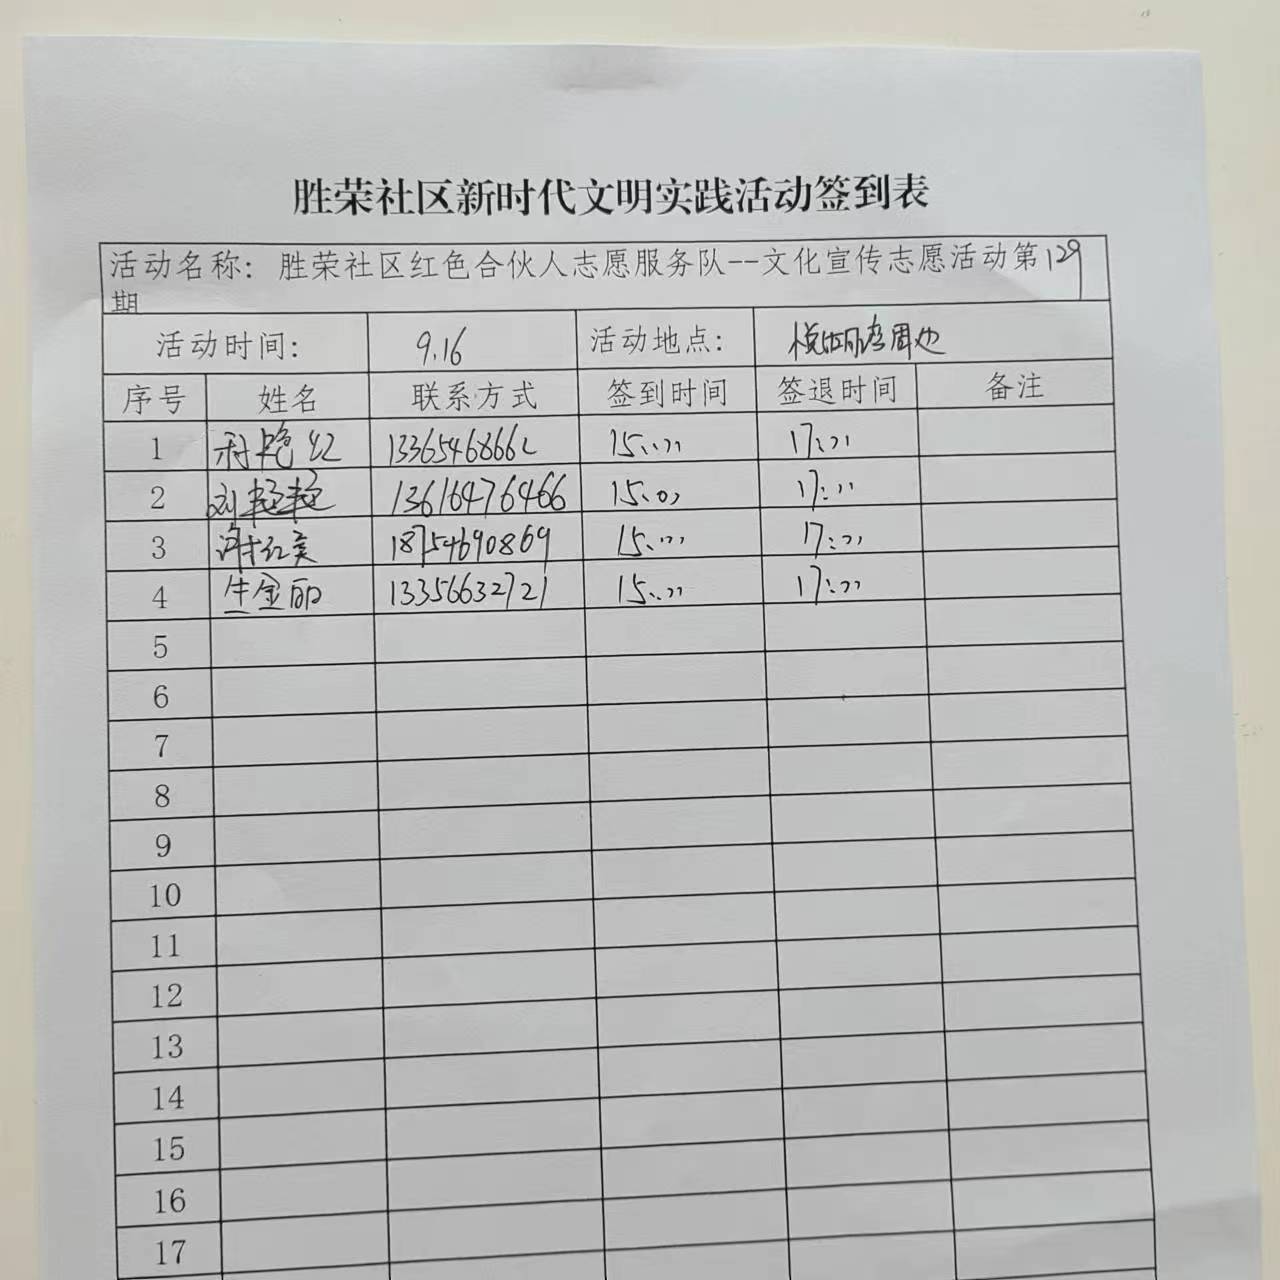 胜荣社区新时代文明实践活动签到表
活动名称：胜荣社区红色合伙人志愿服务队--文化宣传志愿活动第129
期
活动时间： 9.16 活动地点： 周边
序号 姓名 联系方式 签到时间 签退时间 备注
1 艳红 13365468662 15:00 17:00
2 刘艳艳 13616476466 15:00 17:00
3 谢红英 18754690869 15:00 17:00
4 牛金丽 13356632721 15:00 17:00
5
6
7
8
9
10
11
12
13
14
15
16
17